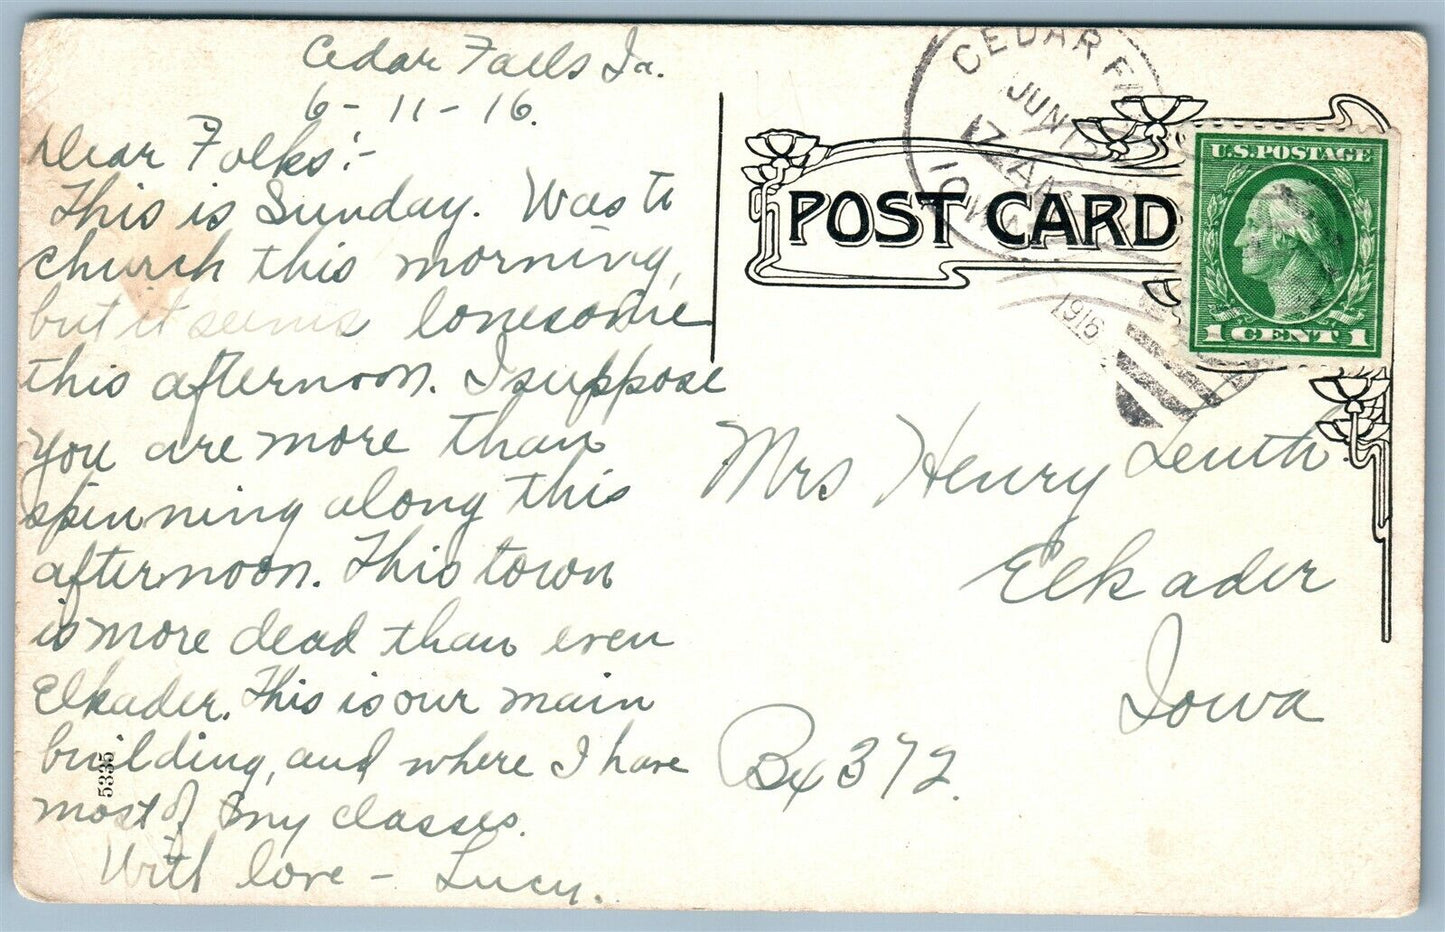 Cedar Falls Ia.
6-11-16.
Dear Folks:-
This is Sunday. Was to
church this morning,
but it seems lonesome
this afternoon. I suppose
you are more than
spinning along this
afternoon. This town
is more dead than even
Elkader. This is our main
building, and where I have
most of my classes.
With love - Lucy.
5335
CEDAR FA
JUN 12
7 AM
IOWA
1916
POST CARD
U.S. POSTAGE
1 CENT 1
Mrs Henry Lenth.
Elkader
Iowa
Bx 372.